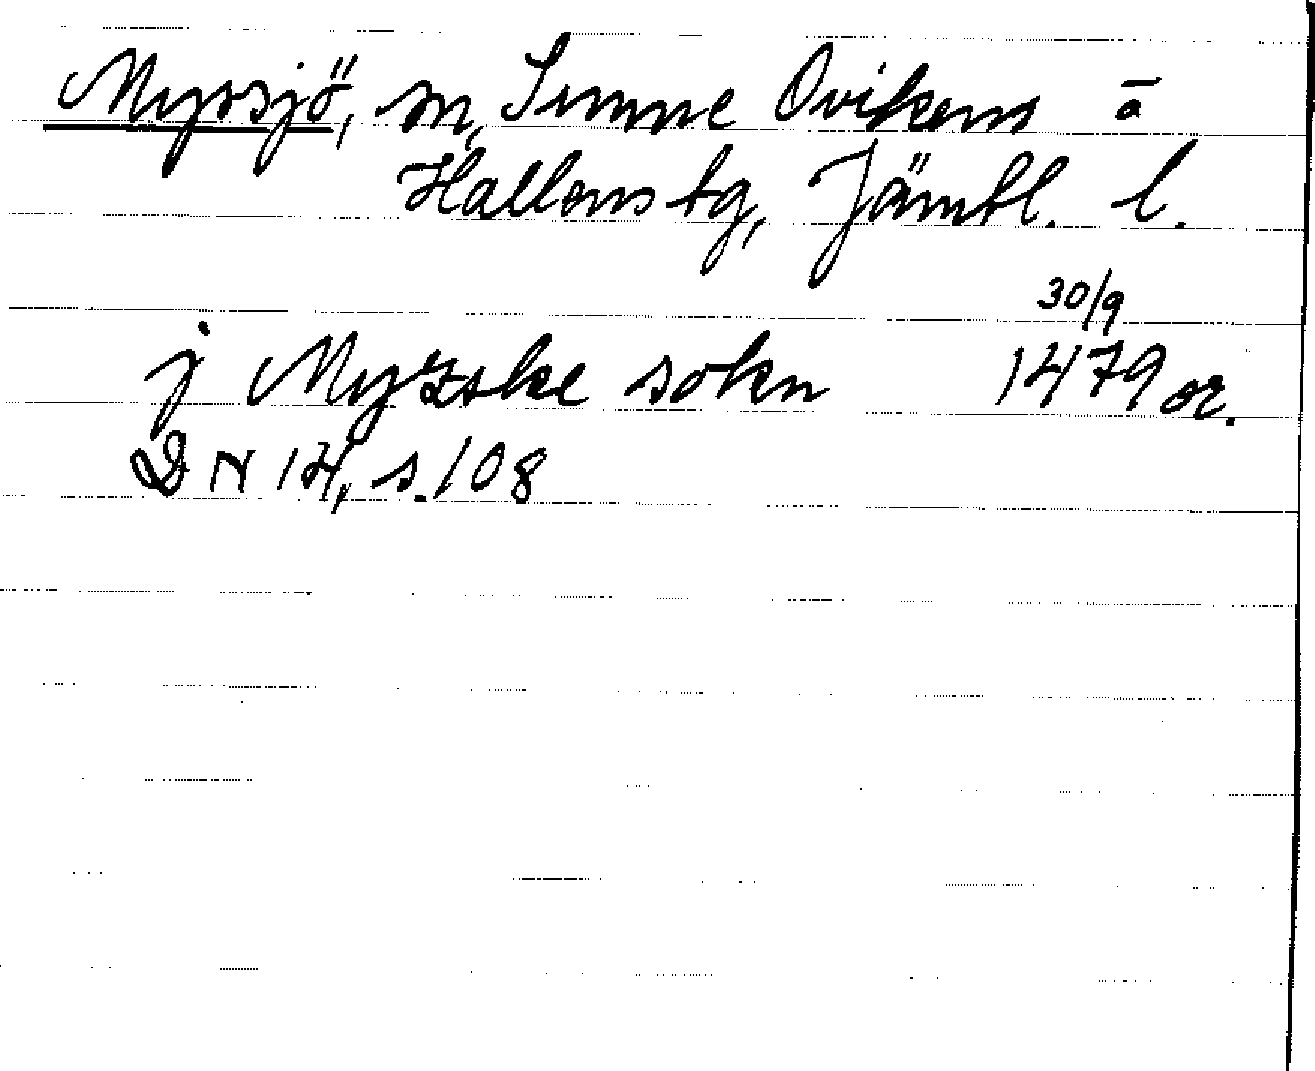 Myssjö, sn, Sunne Ovikens o
Hallens tg, Jämtl. l.
30/9
j Myzske sokn 1479 or.
DN 14, s. 108